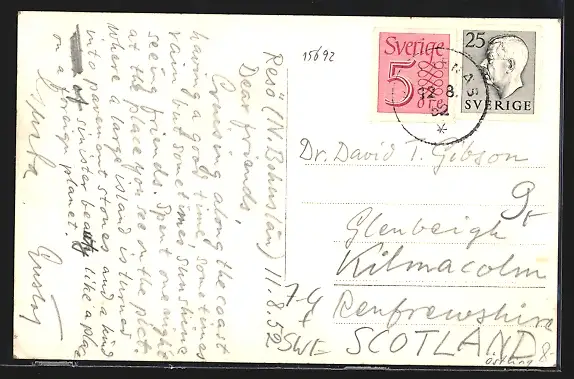 Resö (N. Bohuslän) 11.8.52
Dear friends,
Cruising along the coast
having a good time, sometimes
rain but sometimes sunshine
seeing friends. Spent one night
at the place you see on the phot.
where a large island is turned
into pavement stones and a kind
of sinister beauty like a place
on a foreign planet.
Gustaf
15692
Sverige
5
öre
25
SVERIGE
12 8.
52
Dr. David T. Gibson
Glenbeigh
Kilmacolm
Renfrewshire
SCOTLAND
SWE
8-